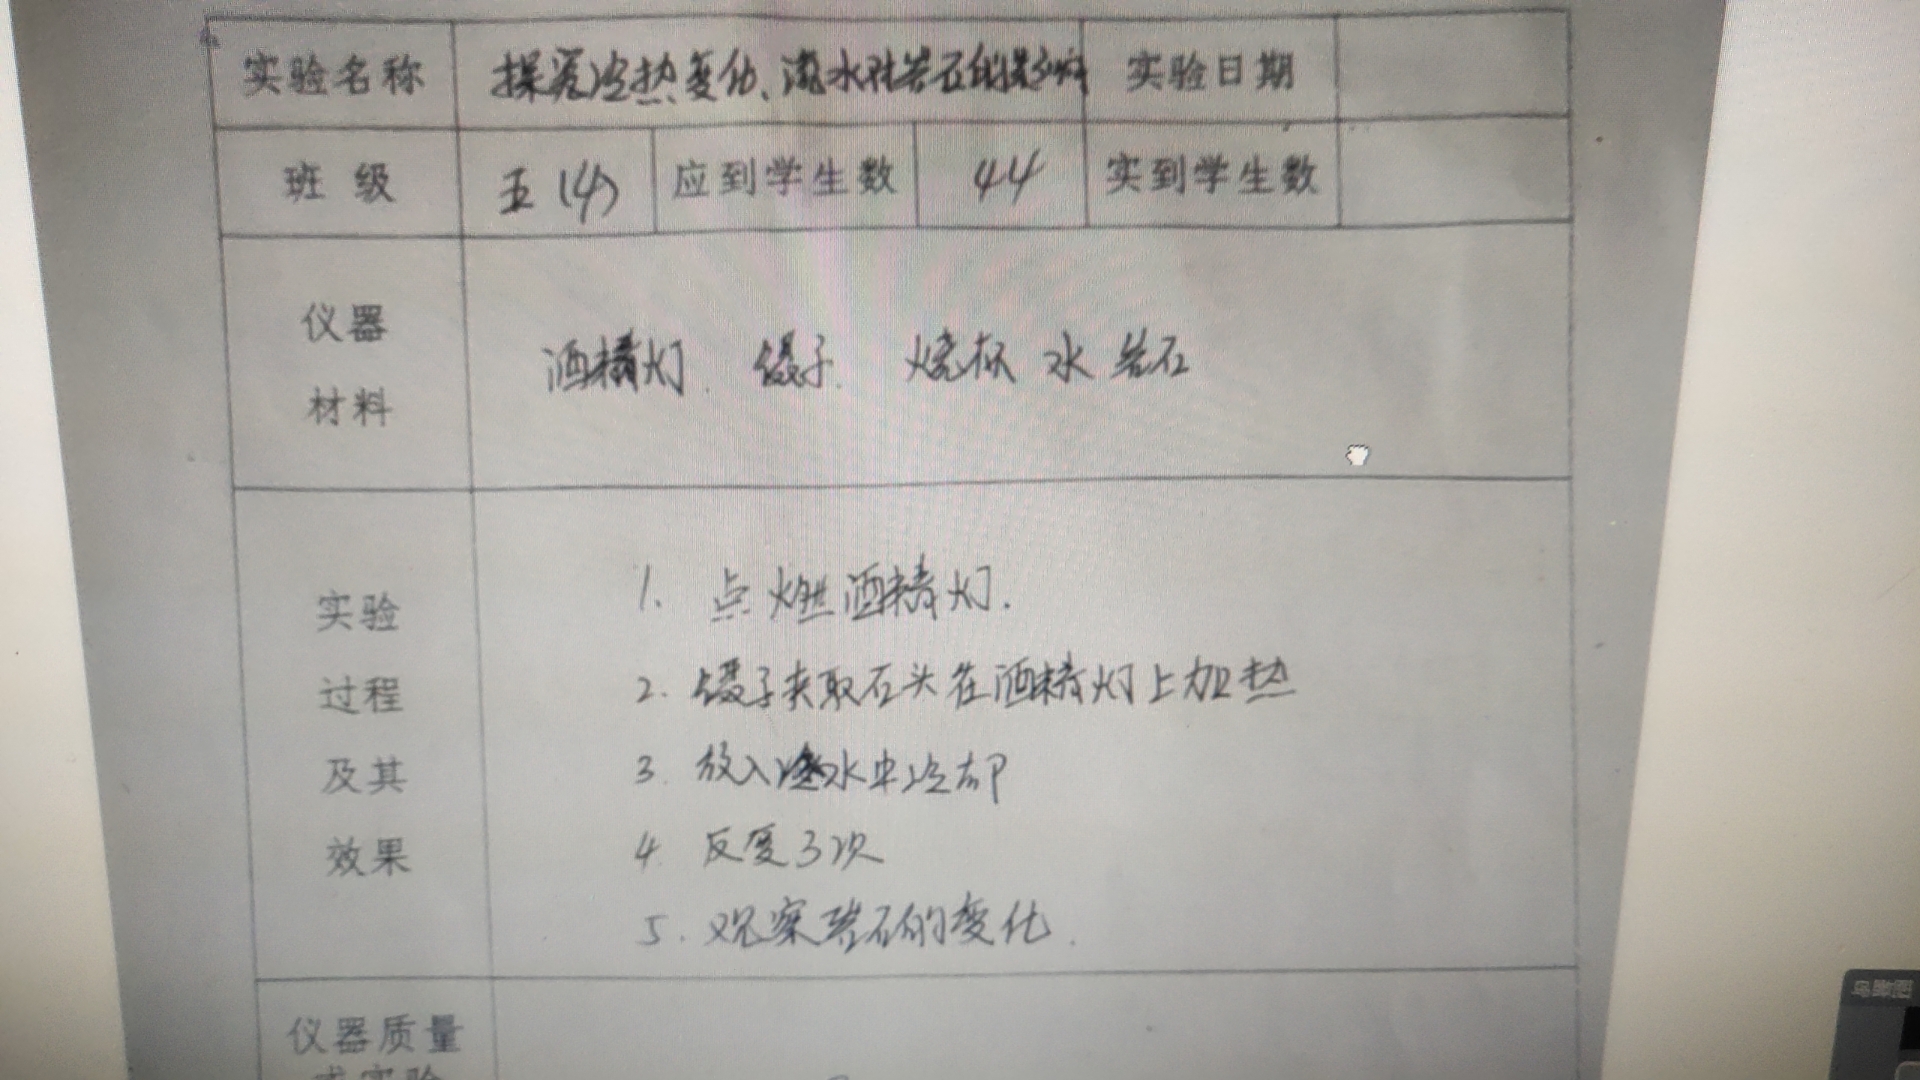 实验名称 探究冷热变化、流水对岩石的影响 实验日期
班 级 五(4) 应到学生数 44 实到学生数
仪器
材料
酒精灯. 镊子. 烧杯 水 岩石
实验
过程
及其
效果
1. 点燃酒精灯.
2. 镊子夹取石头在酒精灯上加热
3. 放入冷水中冷却
4. 反复3次
5. 观察岩石的变化.
仪器质量
或实验
鸟瞰图